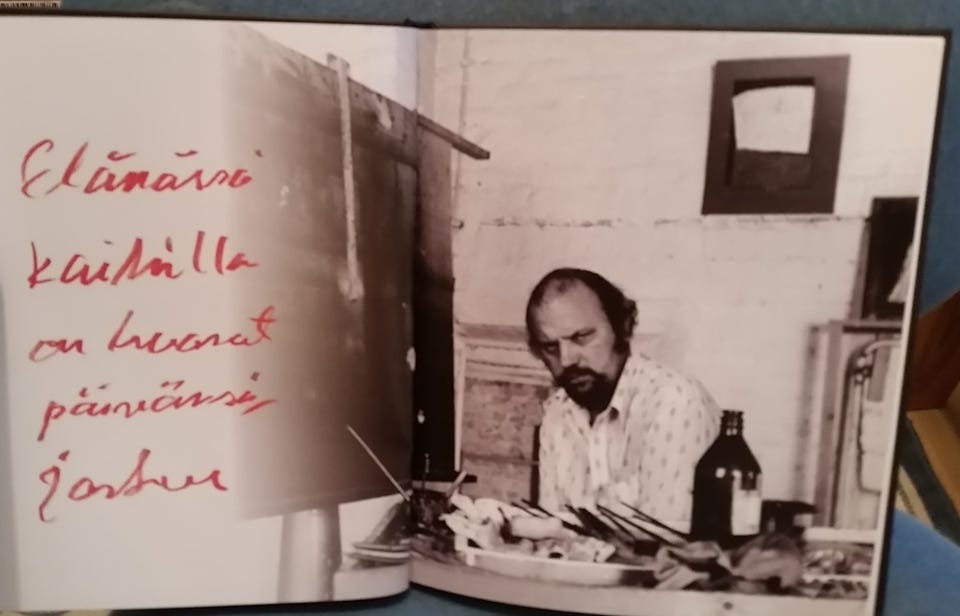 Elämässä
kaikilla
on huonot
päivänsä,
joskus